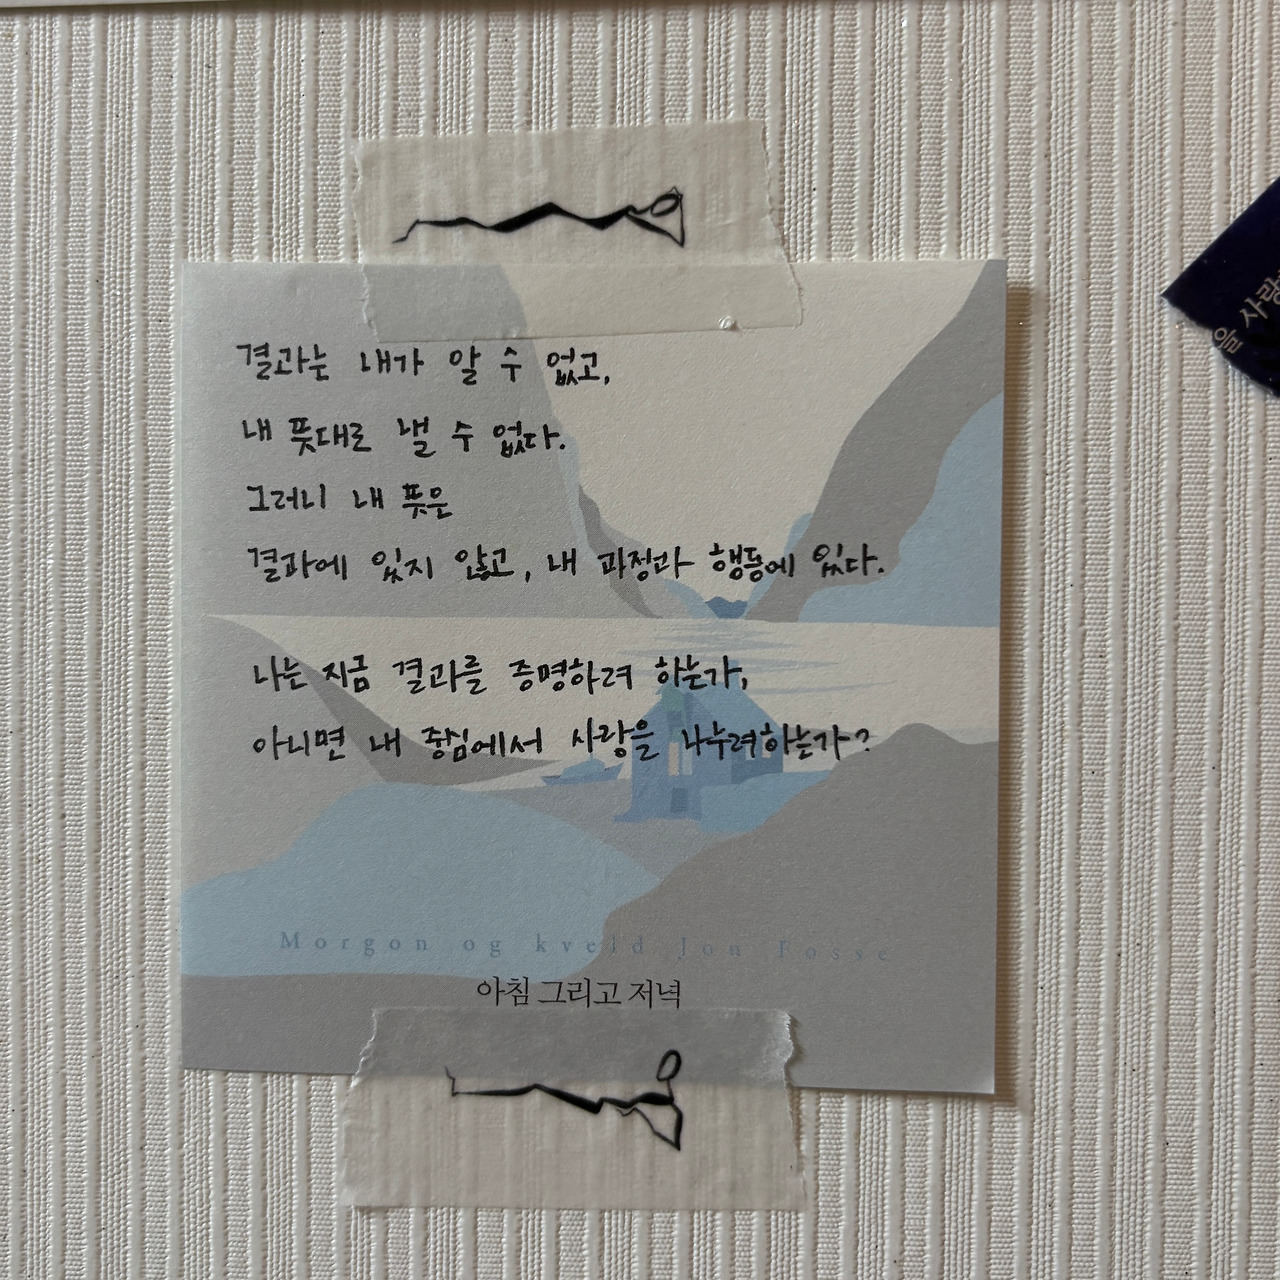 결과는 내가 알 수 없고,
내 뜻대로 낼 수 없다.
그러니 내 뜻은
결과에 있지 않고, 내 과정과 행동에 있다.
나는 지금 결과를 증명하려 하는가,
아니면 내 중심에서 사랑을 나누려하는가?
Morgon og kveld Jon Fosse
아침 그리고 저녁
을 사랑